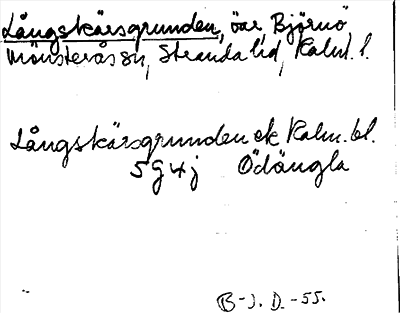 Långskärsgrunden, öar Björnö
Mönsterås sn, Stranda hd, Kalm. l.
Långskärsgrunden ek Kalm. bl.
5 G 4 j Ödängla
B-J. D. -55.